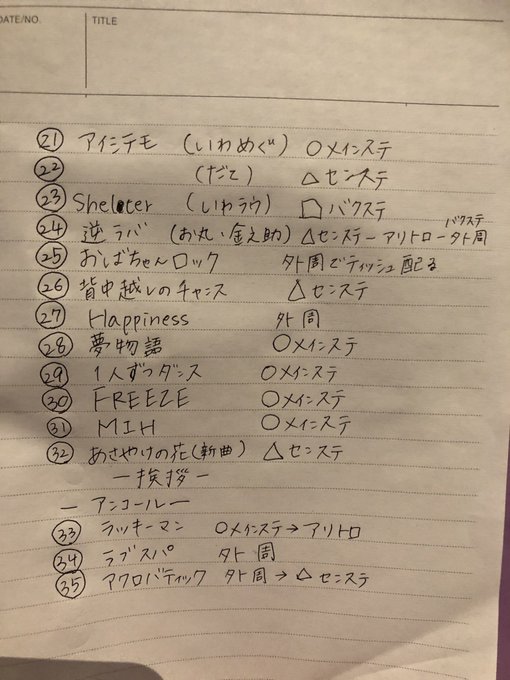 DATE/NO.
TITLE
㉑ アイシテモ (いわめぐ) ○メインステ
㉒ (だて) △センステ
㉓ Shelter (いわラウ) バクステ
㉔ 逆ラバ (お丸・金之助) △センステーアリトローバクステ外周
㉕ おしばちゃんロック 外周でティッシュ配る
㉖ 背中越しのチャンス △センステ
㉗ Happiness 外周
㉘ 夢物語 ○メインステ
㉙ 1人ずつダンス ○メインステ
㉚ FREEZE ○メインステ
㉛ MIH ○メインステ
㉜ あさやけの花(新曲) △センステ
ー挨拶ー
ーアンコールー
㉝ ラッキーマン ○メインステ→アリトロ
㉞ ラブスパ 外周
㉟ アクロバティック 外周→△センステ